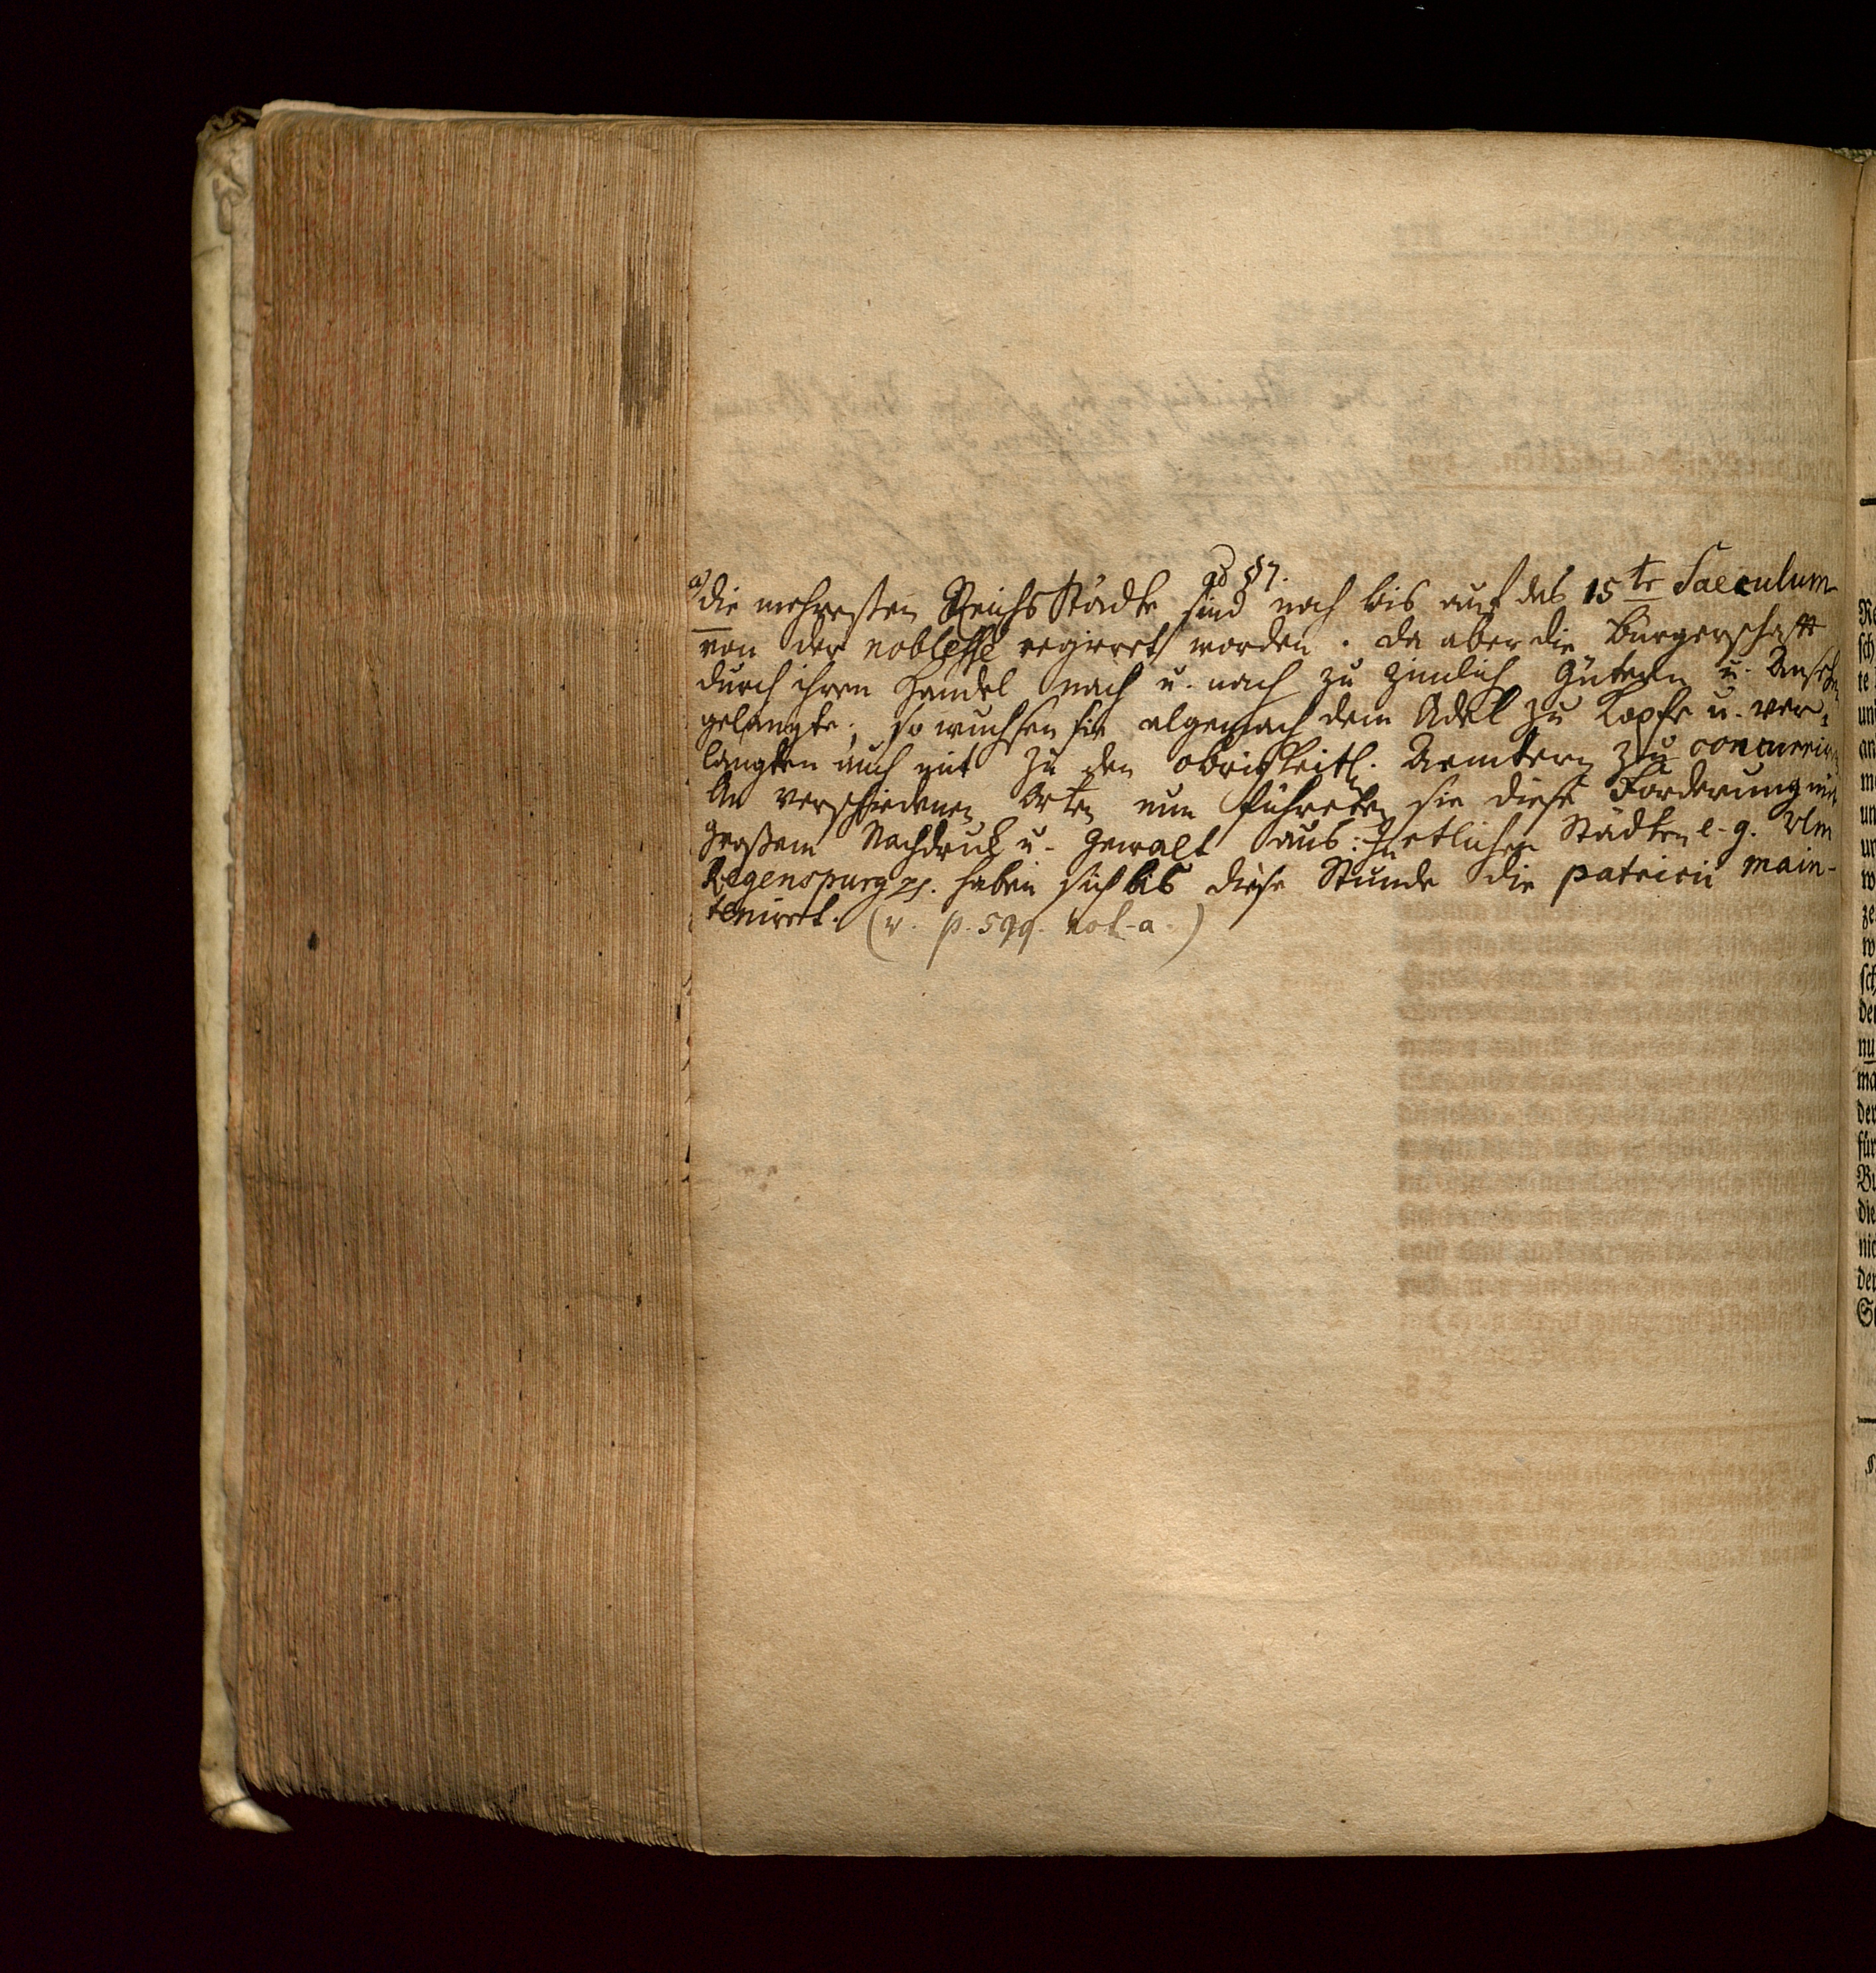 ad §7.
a) die mehresten Reichs Städte sind noch bis auf das 15te Saeculum
von der noblesse regirret worden. da aber die Bürgerschafft
durch ihren Handel nach u. nach zu zimlich Gütern u. Ansehn
gelangte; so wuchsen sie algemach dem Adel zu Kopfe u. ver-
langten auch mit zu den obrigkeitl. Aemtern zu concurrirn
An verschiedenen Orten nun führeten sie diese Forderung mit
großem Nachdruck u. Gewalt aus: In etlichen Städten e. g. Ulm
Regenspurg pp. haben sich bis diese Stunde die patricii main-
tenirret. (v. p. 599. not. a.)